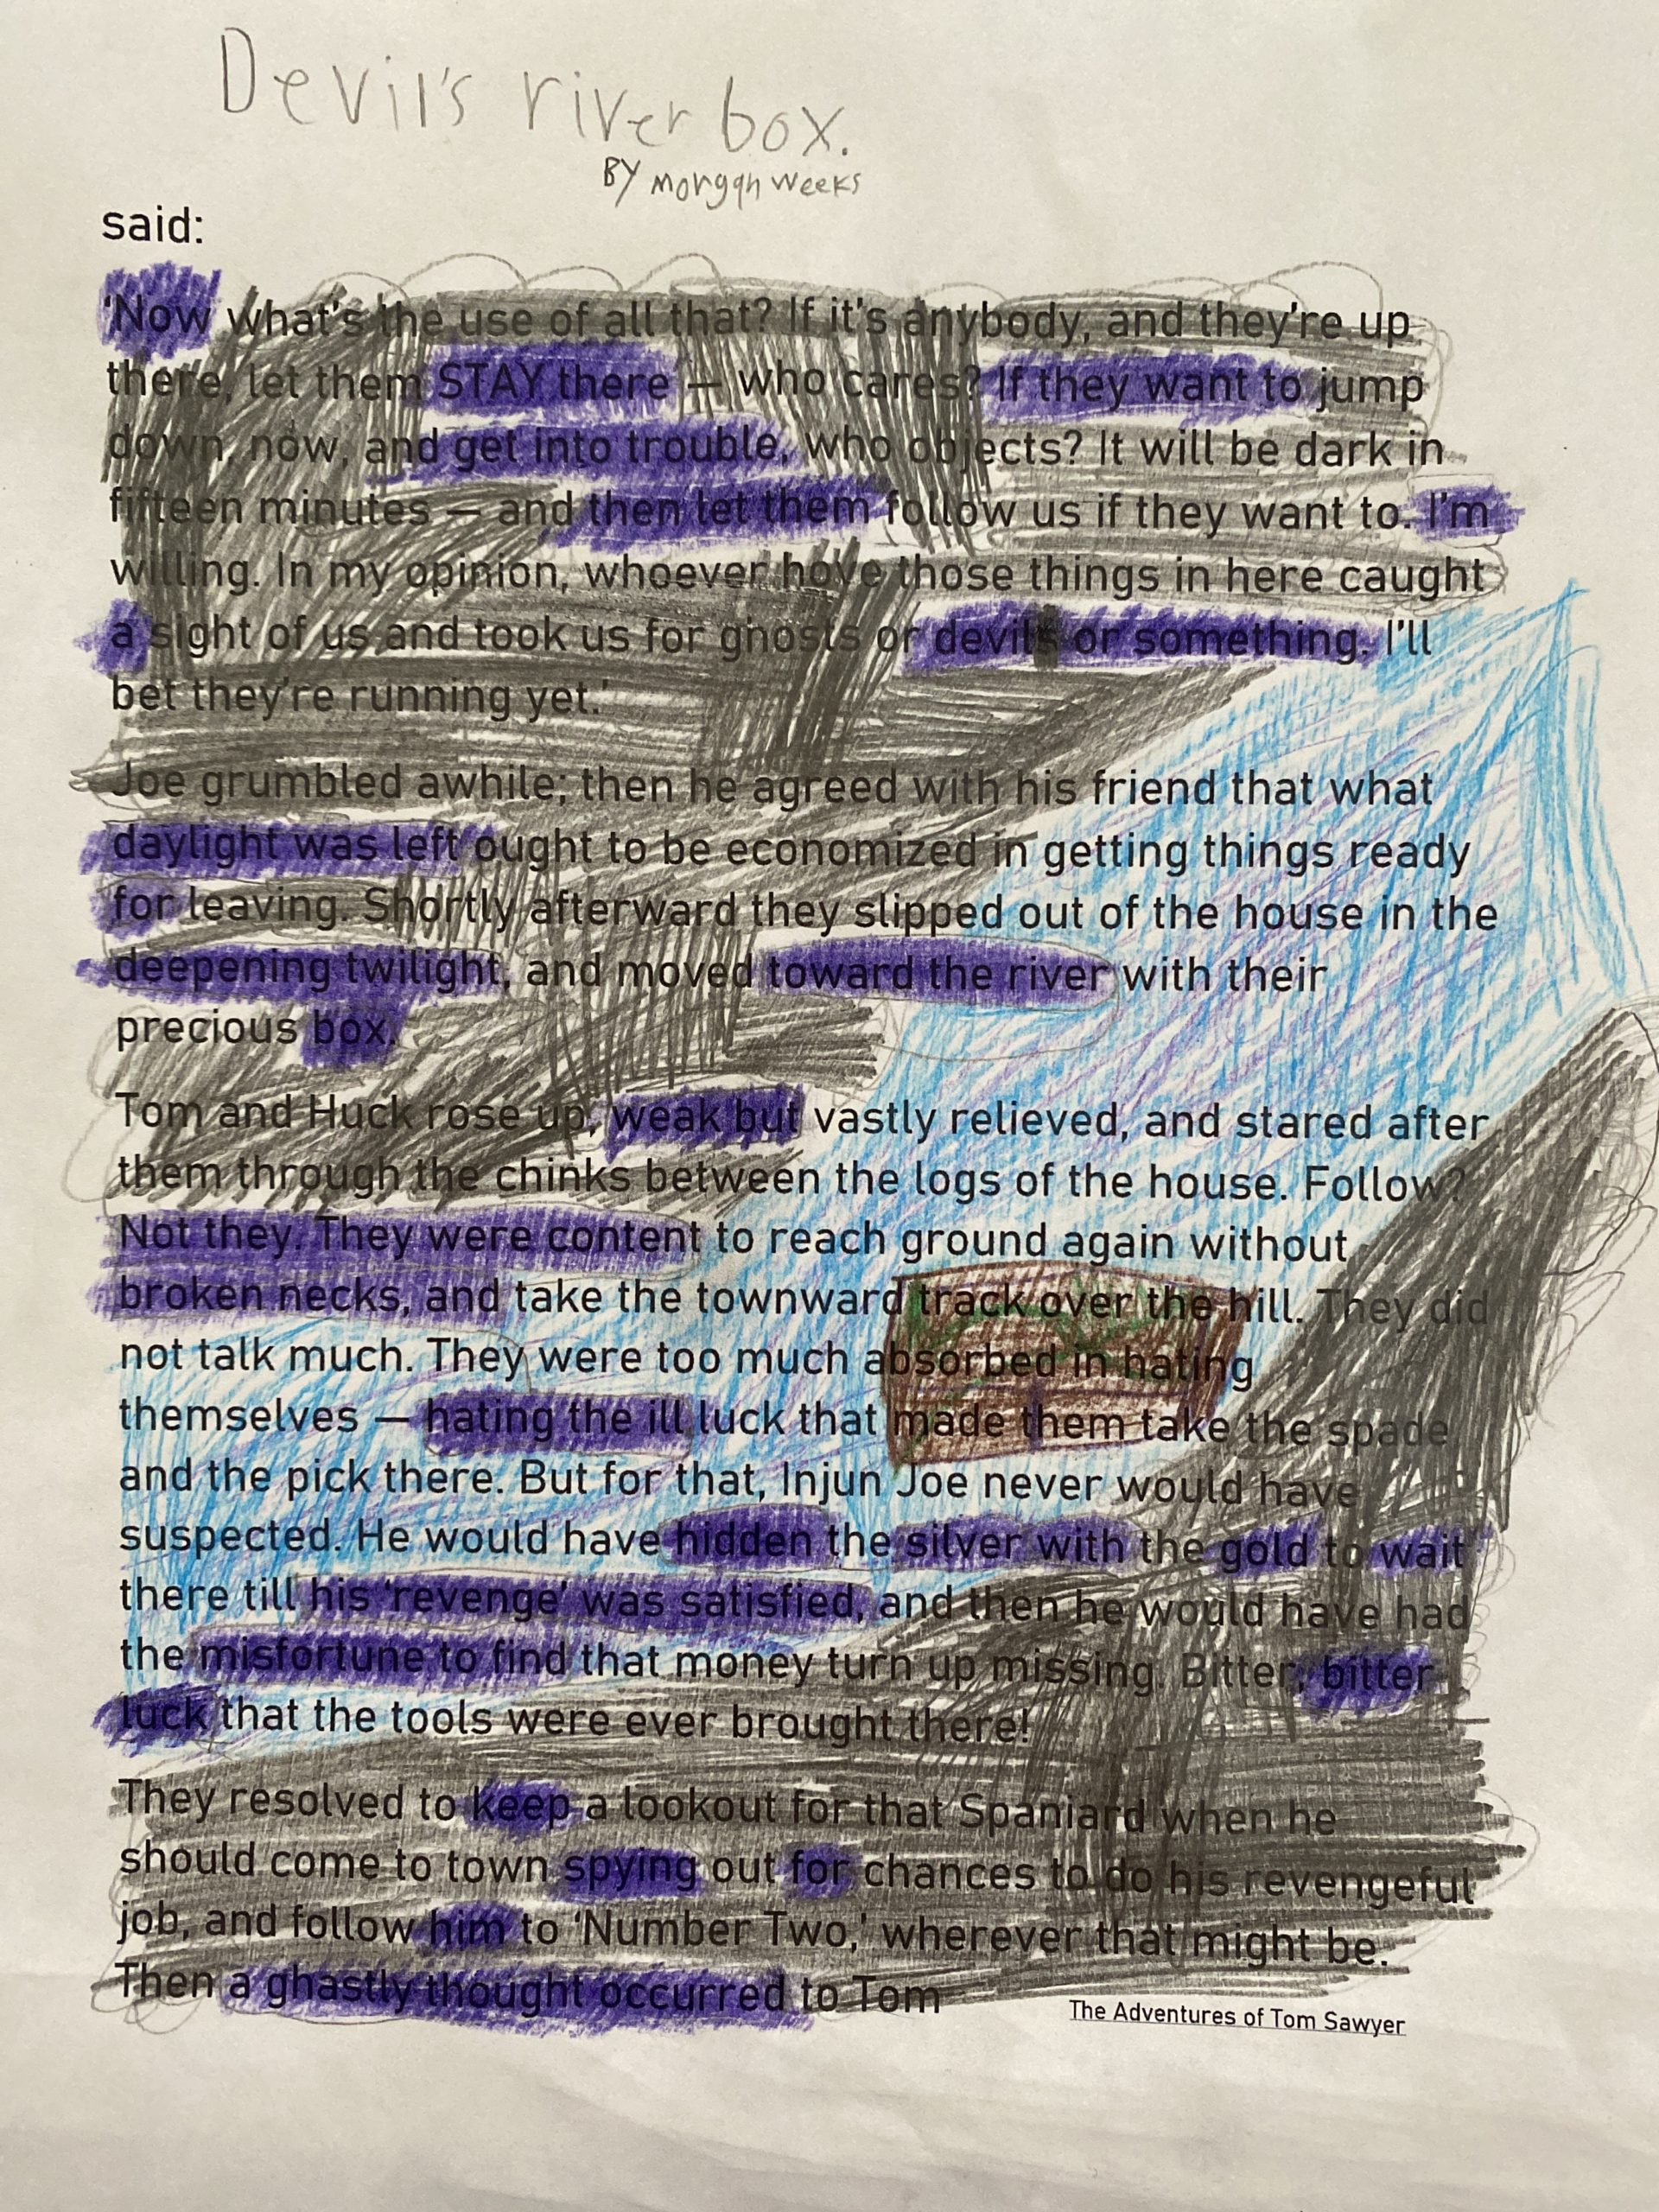 Devil's river box.
BY morgan weeks
said:
'Now what's the use of all that? If it's anybody, and they're up
there, let them STAY there — who cares? If they want to jump
down, now, and get into trouble, who objects? It will be dark in
fifteen minutes — and then let them follow us if they want to. I'm
willing. In my opinion, whoever hove those things in here caught
a sight of us and took us for ghosts or devils or something. I'll
bet they're running yet.'
Joe grumbled awhile; then he agreed with his friend that what
daylight was left ought to be economized in getting things ready
for leaving. Shortly afterward they slipped out of the house in the
deepening twilight, and moved toward the river with their
precious box.
Tom and Huck rose up, weak but vastly relieved, and stared after
them through the chinks between the logs of the house. Follow?
Not they. They were content to reach ground again without
broken necks, and take the townward track over the hill. They did
not talk much. They were too much absorbed in hating
themselves — hating the ill luck that made them take the spade
and the pick there. But for that, Injun Joe never would have
suspected. He would have hidden the silver with the gold to wait
there till his 'revenge' was satisfied, and then he would have had
the misfortune to find that money turn up missing. Bitter, bitter
luck that the tools were ever brought there!
They resolved to keep a lookout for that Spaniard when he
should come to town spying out for chances to do his revengeful
job, and follow him to 'Number Two,' wherever that might be.
Then a ghastly thought occurred to Tom
The Adventures of Tom Sawyer